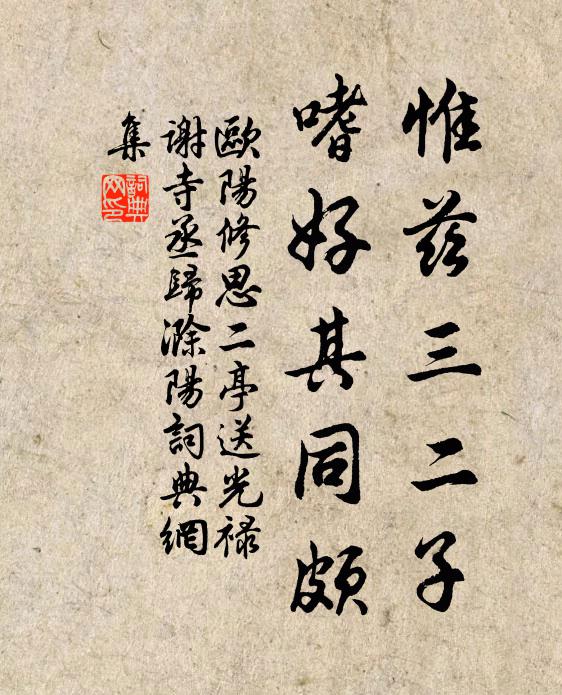 惟茲三二子
嗜好其同頗
歐陽修思二亭送光祿
謝寺丞歸滁陽詞典網
集
詞典
网印